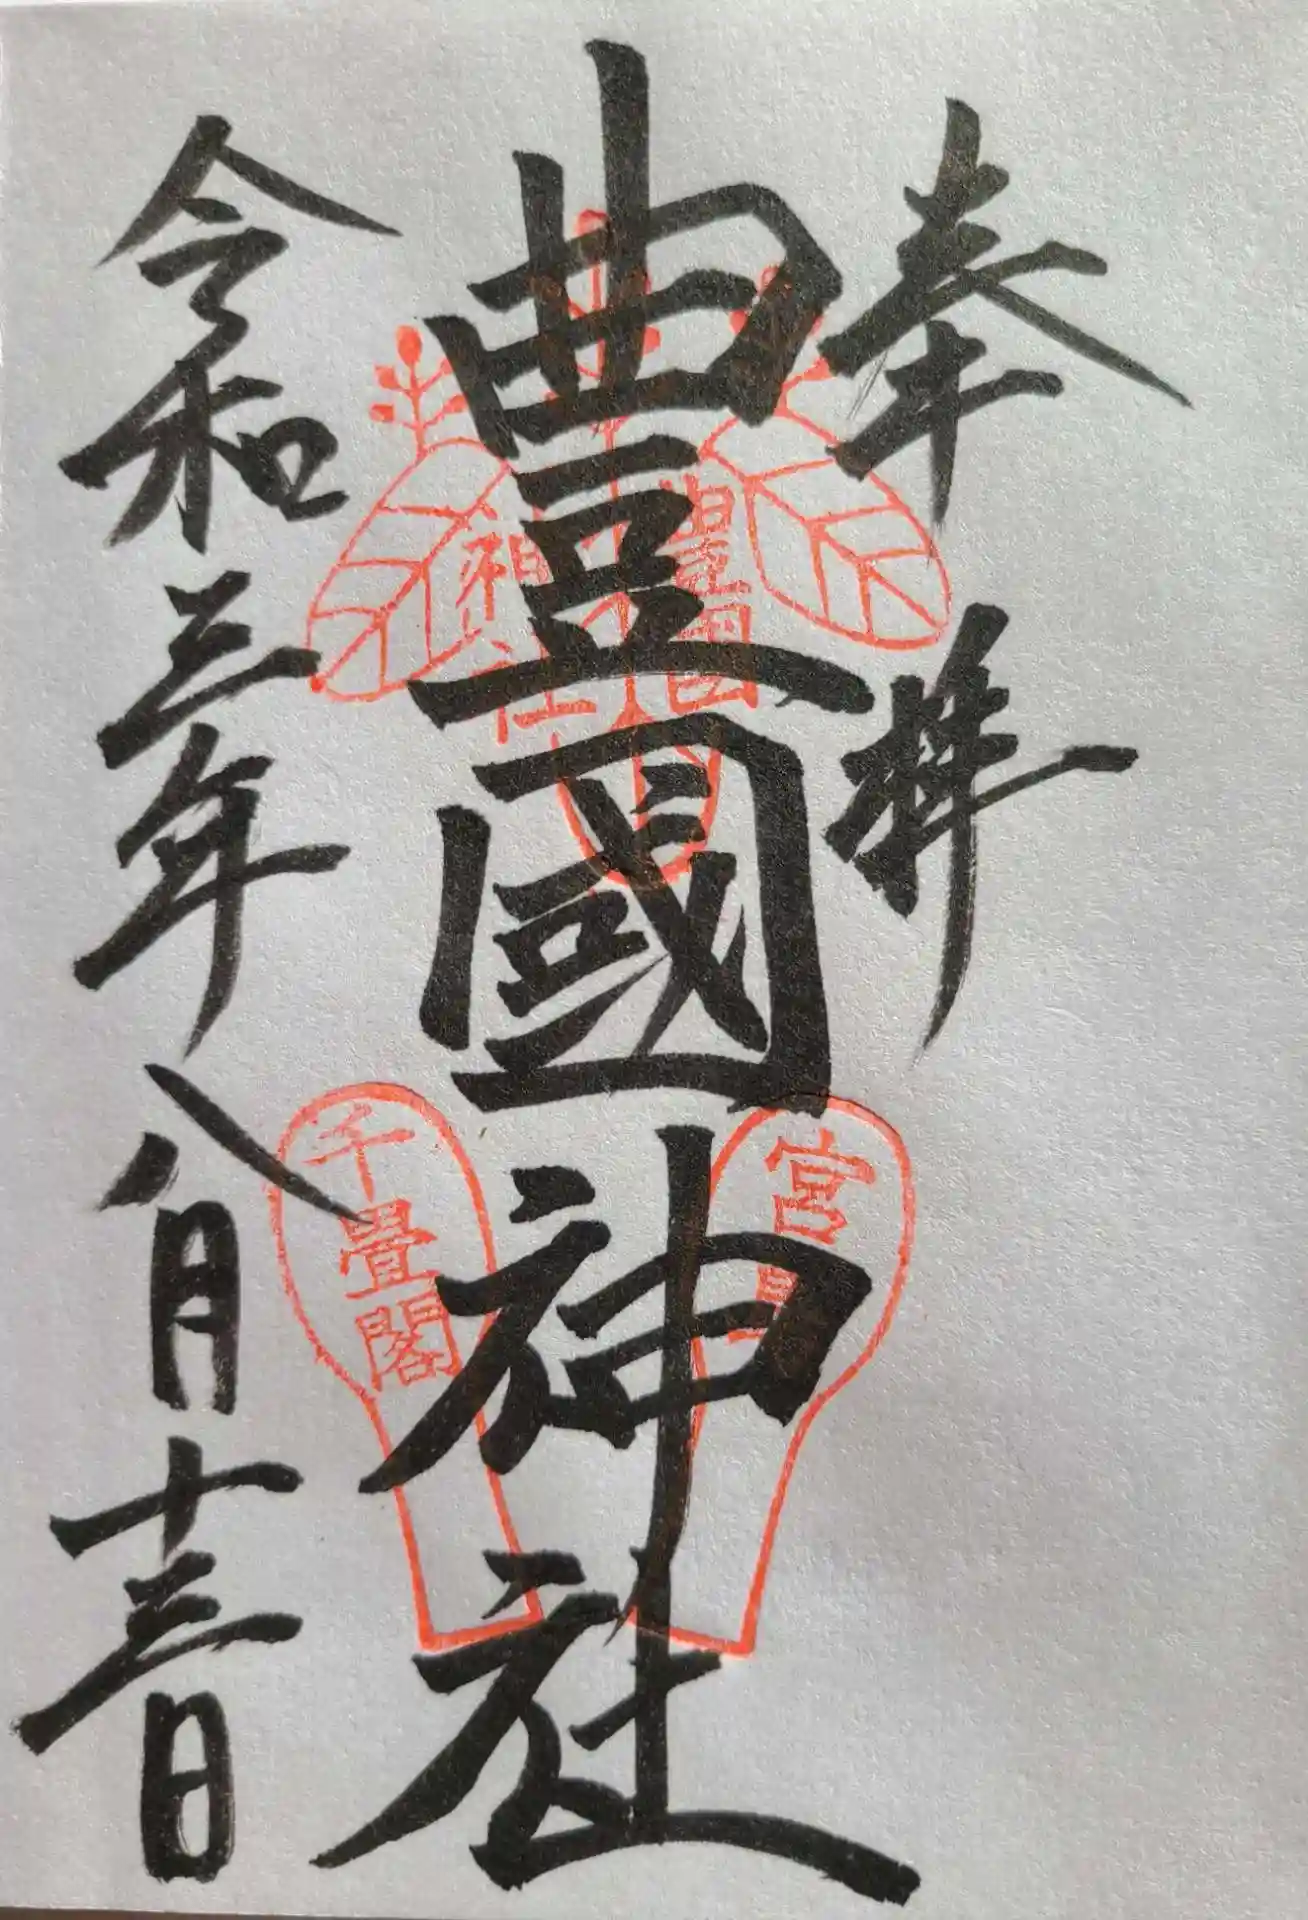 奉拝
豊國神社
令和三年八月十三日
豊国
神社
宮島
千畳閣